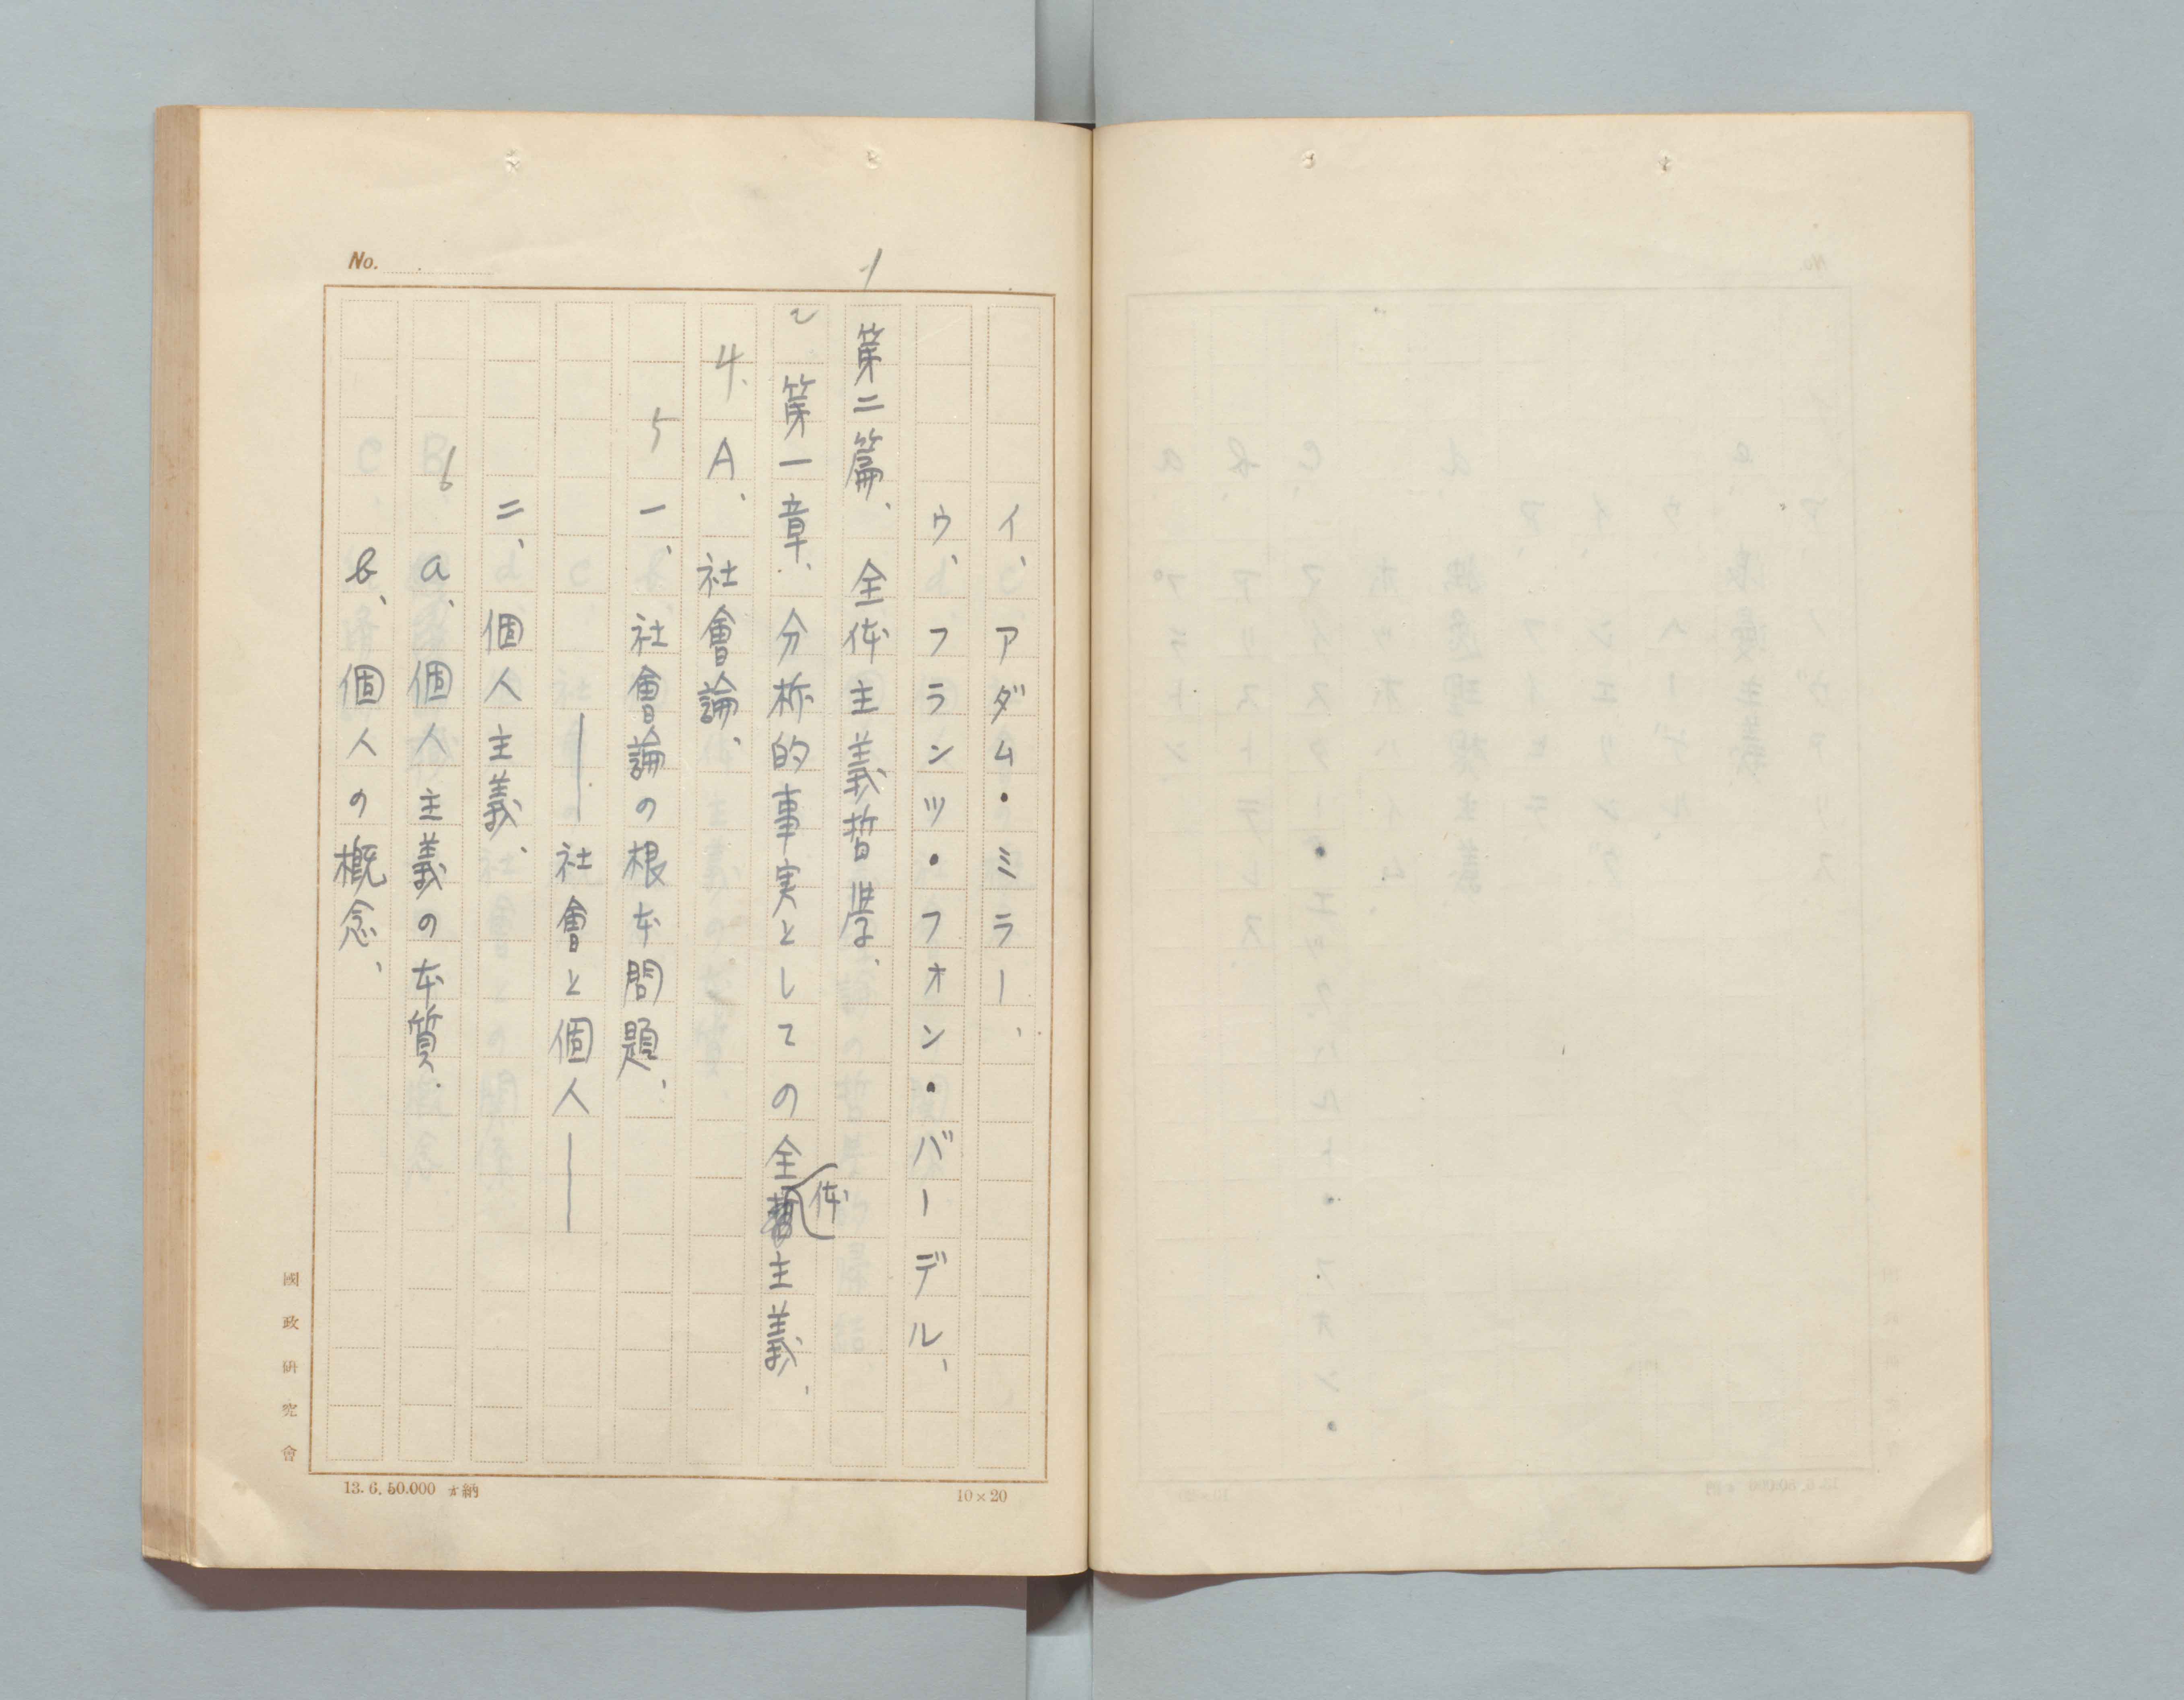 No.
イ、アダム・ミラー、
ウ、フランツ・フオン・バーデル、
1
第二篇、全体主義哲学、
2
第一章、分析的事実としての全体主義、
4、A、社會論、
5
一、社會論の根本問題、
――社會と個人――
二、個人主義、
6
a、個人主義の本質、
b、個人の概念、
國政研究會
13.6.50.000 納
10×20